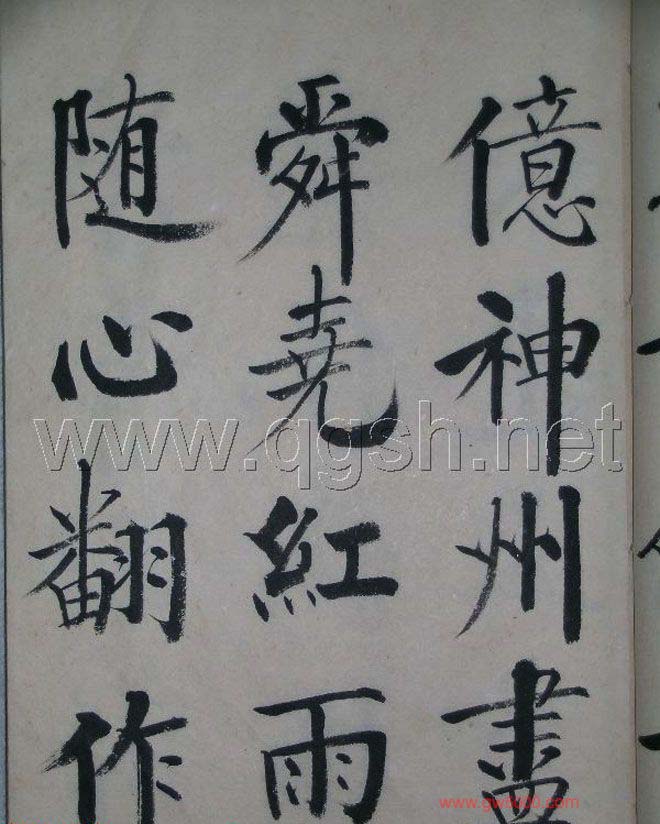 億神州盡
舜尭紅雨
随心翻作
www.qgsh.net
www.gw8000.com